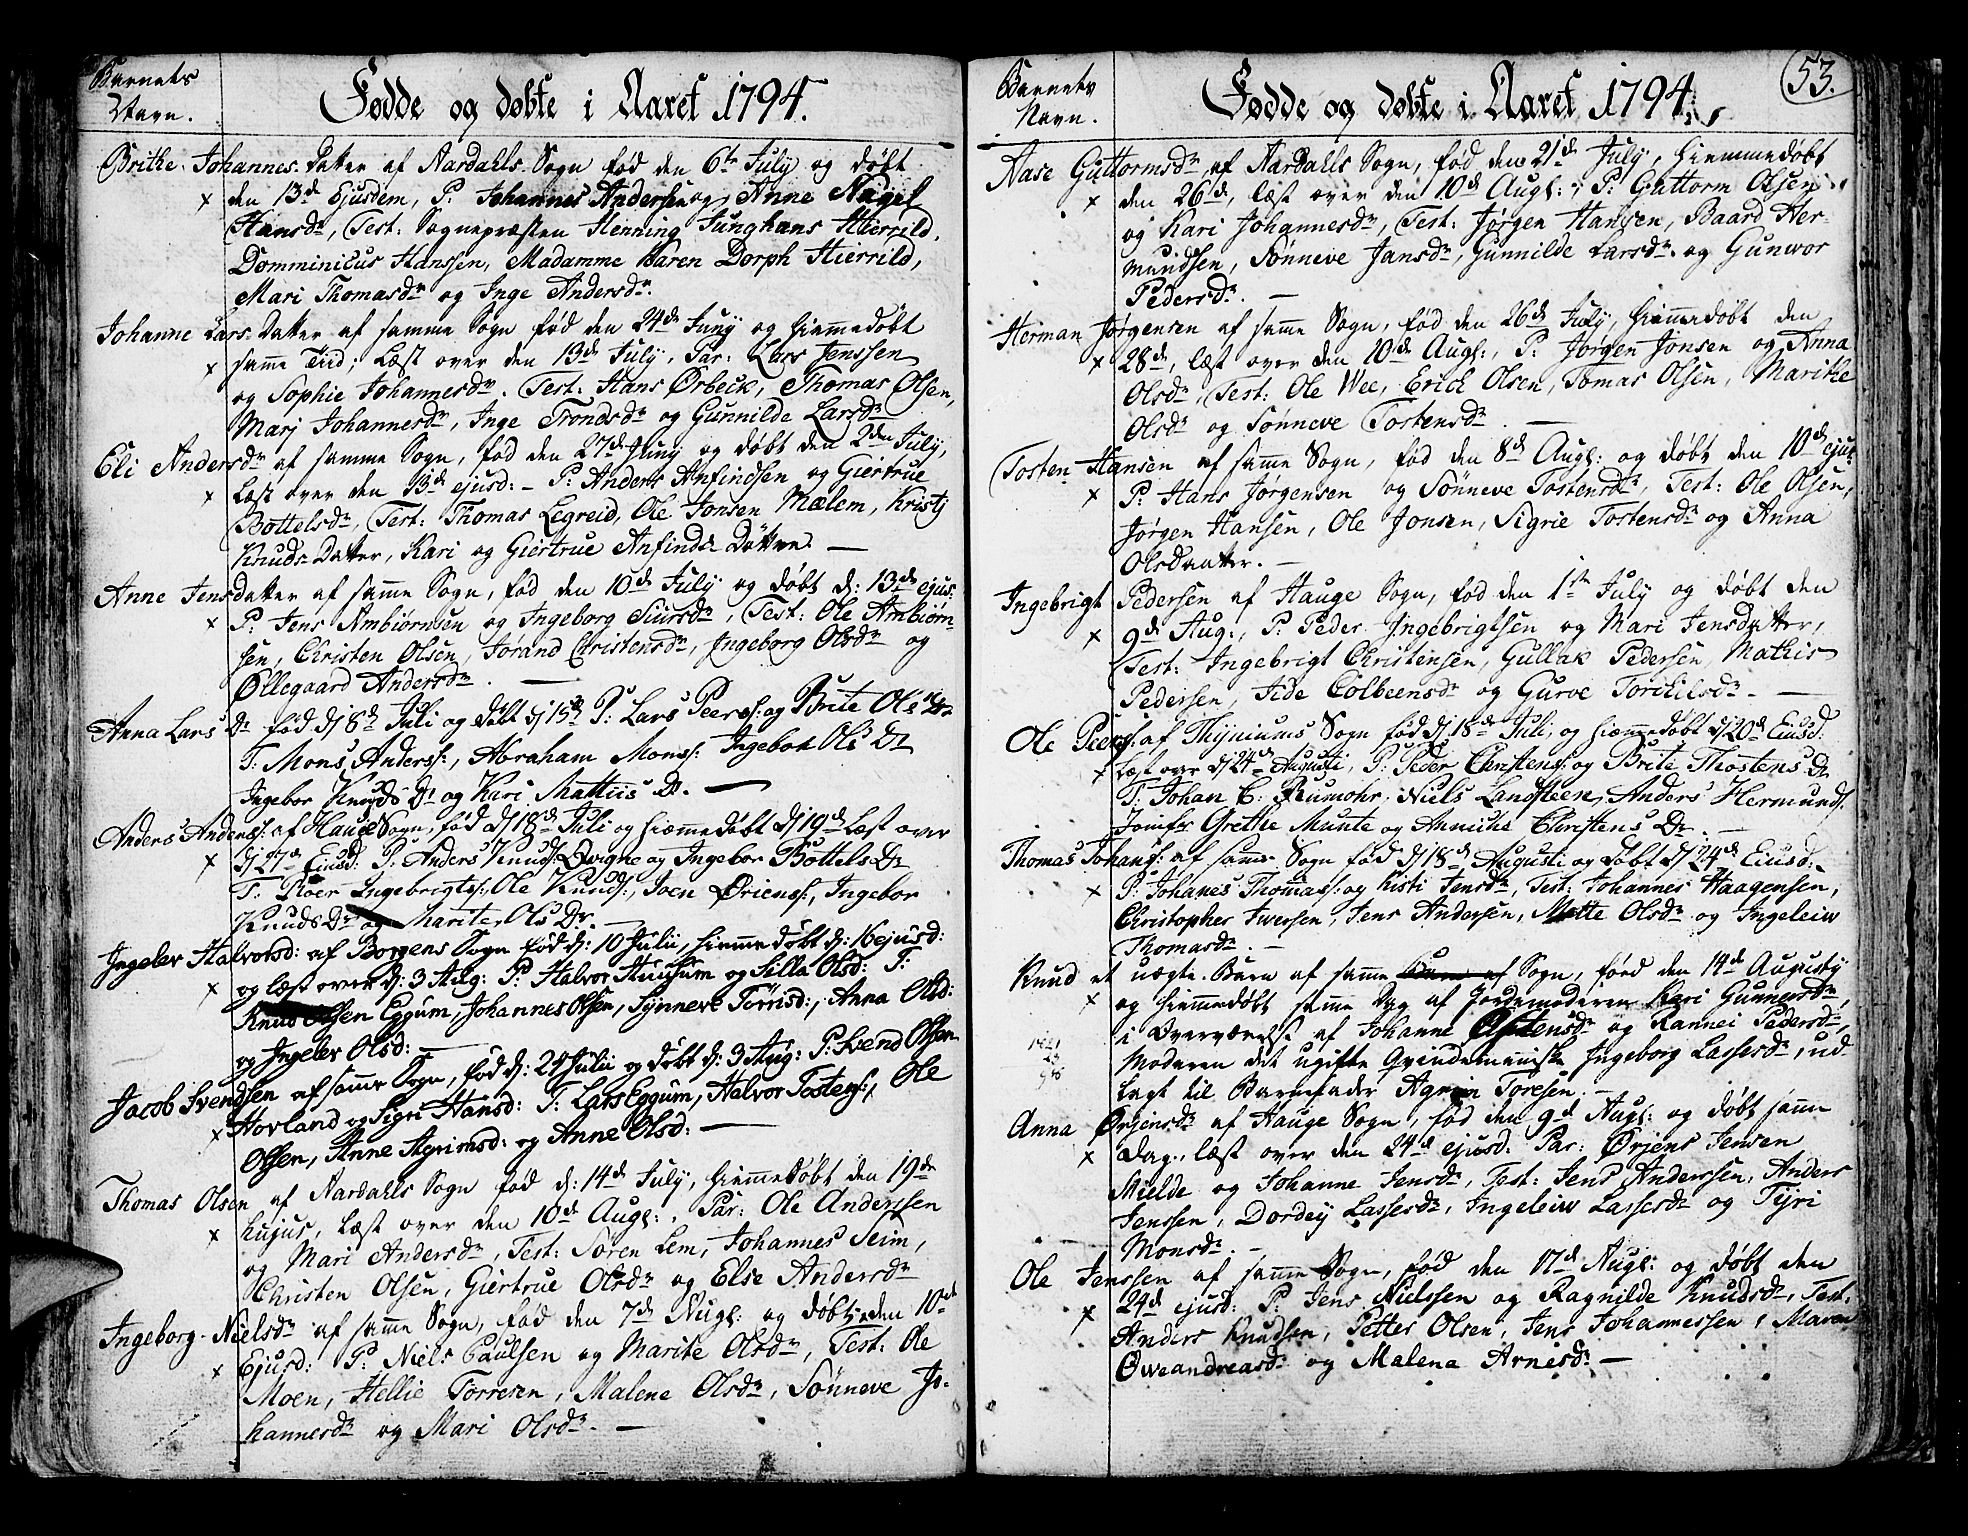 Barnets
Navn.
Fødde og døbte i Aaret 1794.
Brithe Johannes Datter af Aardahls Sogn fød den 6te July og døbt
x den 13de Ejusdem, P: Johannes Andersen og Anne Nagel
Hansdr, Test: Sognepræsten Henning Junghans Hierrild,
Domminicus Hanssen, Madamme Karen Dorph Hierrild,
Mari Thomasdr og Inge Andersdr.
Johanne Lars Datter af samme Sogn fød den 24de Juny og hiemmedøbt
x samme Tiid, læst over den 13de July, Par: Lars Jenssen
og Sophie Johannesdr. Test: Hans Ørbeck, Thomas Olsen,
Marj Johannesdr, Inge Trondsdr og Gunnilde Larsdr
Eli Andersdr af samme Sogn, fød den 27de Juny og døbt den 2den July,
x læst over den 13de ejusd: - P: Anders Anfindsen og Giertrue
Bottelsdr, Test: Thomas Legreid, Ole Jonsen Mælem, Kristj
Knuds Datter, Kari og Giertrue Anfinds Døttre. —
Anne Jensdatter af samme Sogn, fød den 10de July og døbt d: 13de ejus:
x P: Jens Ambiørnsen og Ingeborg Siursdr, Test: Ole Ambiørn-
sen, Christen Olsen, Jørand Christensdr, Ingeborg Olsdr og
Øllegaard Andersdr. —
Anna Lars Dr fød dj 8de Juli og døbt dj 13de P: Lars Peers: og Brite Ols Dr
T: Mons Anders:, Abraham Mons: Ingebor Ols Dr
Ingebor Knuds Dr og Kari Mattiis Dr. —
Anders Anders: af Hauge Sogn, fød dj 18de Juli og hiemmedøbt dj 19de læst over
x dj 27de Eiusd: P: Anders Knuds: Qvigne og Ingebor Bottels Dr
T: Roer Ingebrigts: Ole Knuds:, Joen Øriens:, Ingebor
Knuds Dr og Marite Ols Dr. —
Ingelev Halvorsd: af Borgens Sogn fød d: 10 Julii, hiemmedøbt d: 16 ejusd:
x og læst over d: 3 Aug: P: Halvor Huusum og Silla Olsd: T:
Knud Olsen Eggum, Johannes Olsen, Synneve Torrisd:, Anna Olsd:
og Ingelev Olsd: —
Jacob Svendsen af samme Sogn, fød d: 24 Julii og døbt d: 3 Aug: P: Svend Olsen
x Hovland og Sigri Hansd: T: Lars Eggum, Halvor Tostens:, Ole
Olsen, Anne Agrimsd: og Anne Olsd: —
Thomas Olsen af Aardahls Sogn fød d: 14de July, hiemmedøbt den 19de
x hujus, læst over den 10de Augs:, Par: Ole Anderssen
og Mari Andersdr, Test: Søren Lem, Johannes Seim,
Christen Olsen, Giertrue Olsdr og Else Andersdr
Ingeborg Nielsdr af samme Sogn, fød den 7de Augs: og døbt den 10de
x Ejusd: P: Niels Paulsen og Marite Olsdr, Test: Ole
Moen, Hellie Torresen, Malene Olsdr, Sønneve Jo-
hannesdr og Mari Olsdr. —
Barnets
Navn.
Fødde og døbte i Aaret 1794.
53.
Aase Guttormsdr af Aardahls Sogn, fød den 21de July, hiemmedøbt
x den 26de, læst over den 10de Augs:, P: Guttorm Olsen
og Kari Johannesdr, Test: Jørgen Hansen, Baard Her-
mundsen, Sønneve Jansdr, Gunnilde Larsdr. og Gunvor
Pedersdr. —
Herman Jørgensen af samme Sogn, fød den 26de July, hiemmedøbt den
x 28de, læst over den 10de Augs:, P: Jørgen Jonsen og Anna
Olsdr, Test: Ole Wee, Erich Olsen, Tomas Olsen, Marithe
Olsdr og Sønneve Tostensdr. —
Tosten Hansen af samme Sogn, fød den 8de Augs: og døbt den 10de ejus:
x P: Hans Jørgensen og Sønneve Tostensdr, Test: Ole Olsen,
Jørgen Hansen, Ole Jonsen, Sigrie Tostensdr og Anna
Olsdaatter. —
Ingebrigt Pedersen af Hauge Sogn, fød den 1ste July og døbt den
x 9de Aug:, P: Peder Ingebrigtsen og Mari Jensdatter,
Test: Ingebrigt Christensen, Gullak Pedersen, Mathis
Pedersen, Jide Colbeensdr og Gurve Torkilsdr. —
Ole Peers: af Thyniums Sogn fød dj 18de Juli, og hiemmedøbt dj 20de Eiusd:
x læst over dj 24de Augusti, P: Peder Christens: og Brite Thostens Dr
T: Johan C. Rumohr, Niels Landsteen, Anders Hermunds:
Jomfr Grethe Munte og Anniche Christens Dr. —
Thomas Johans: af samme Sogn fød dj 18de Augusti og døbt dj 24de Eiusd:
x P: Johanes Thomass: og Kisti Jensdr, Test: Johannes Haagensen,
Christopher Iwersen, Jens Andersen, Mette Olsdr og Ingeleiw
Thomasdr. —
Knud et uægte Barn af samme Sogn, fød den 14de Augusty
x og hiemmedøbt samme Dag af Jordemoderen Kari Gunnersdr,
i Overværelse af Johanne Ostensdr og Rannei Pedersdr,
Moderen det ugifte Qvindemenniske Ingeborg Lassesdr, ud-
lagt til Barnefader Agrim Toresen. —
Anna Ørjensdr af Hauge Sogn, fød den 9de Augs: og døbt samme
x Dag, læst over den 24de ejusd: Par: Ørjens Jensen
Mielde og Johanne Jensdr, Test: Jens Anderssen, Anders
Jenssen, Dordey Lassesdr, Ingeleiw Lassesdr og Tyri
Monsdr. —
Ole Jenssen af samme Sogn, fød den 17de Augs: og døbt den
x 24de ejusd: P: Jens Nielssen og Ragnilde Knudsdr, Test:
Anders Knudsen, Petter Olsen, Jens Johannessen, Maren
Oweandreasdr og Malena Arnesdr. —